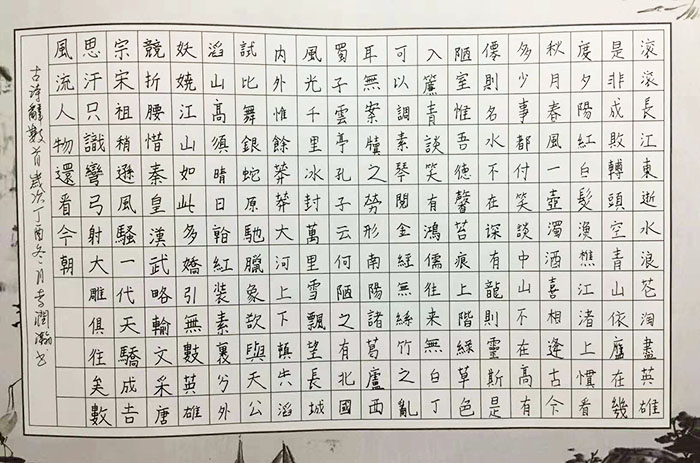 滾滾長江東逝水浪花淘盡英雄
是非成敗轉頭空青山依舊在幾
度夕陽紅白髮漁樵江渚上慣看
秋月春風一壺濁酒喜相逢古今
多少事都付笑談中山不在高有
僊則名水不在深有龍則靈斯是
陋室惟吾徳馨苔痕上階緑草色
入簾青談笑有鴻儒往來無白丁
可以調素琴閱金經無絲竹之亂
耳無案牘之勞形南陽諸葛廬西
蜀子雲亭孔子云何陋之有北國
風光千里冰封萬里雪飄望長城
内外惟餘莽莽大河上下頓失滔
試比舞銀蛇原馳臘象欲與天公
滔山高須晴日看紅裝素裹分外
妖嬈江山如此多嬌引無數英雄
競折腰惜秦皇漢武略輸文采唐
宗宋祖稍遜風騷一代天驕成吉
思汗只識彎弓射大雕俱往矣數
風流人物還看今朝
古诗辭數首歲次丁酉冬月李潤瀚书